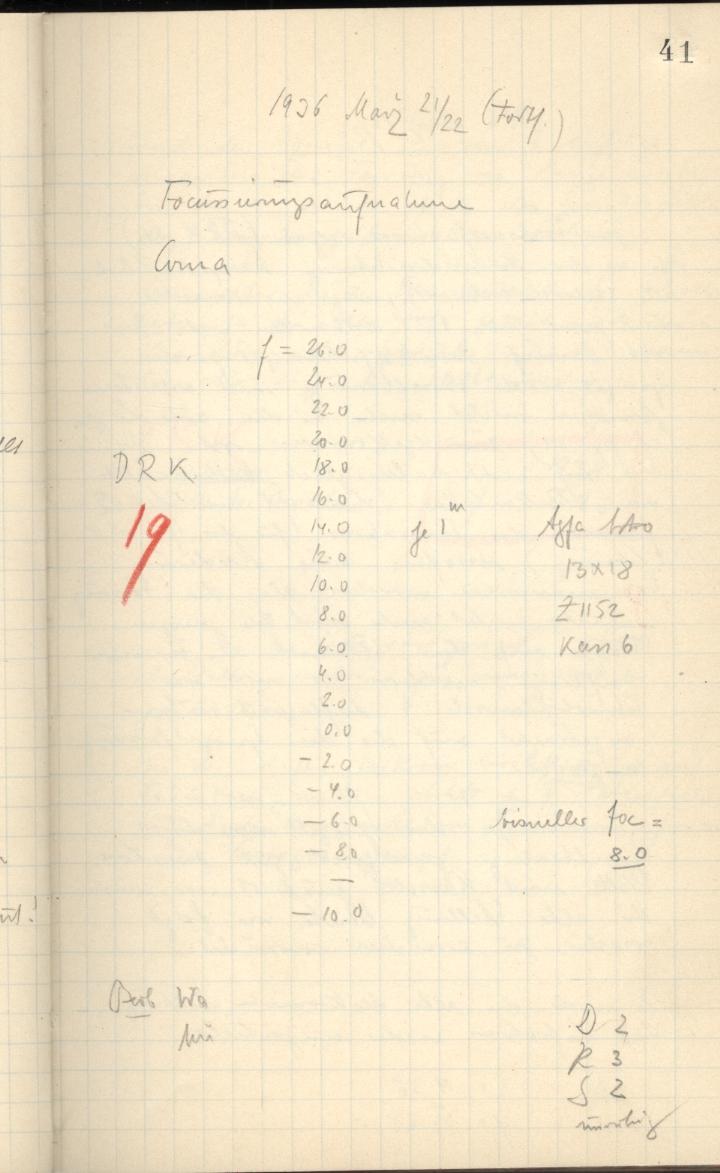 41
1936 März 21/22 (Forts.)
Focussierungsaufnahme
Coma
f = 26.0
24.0
22.0
20.0
DRK 18.0
16.0
19 14.0 je 1m Agfa Astro
12.0
13x18
10.0
8.0 Z1152
6.0 Kass 6
4.0
2.0
0.0
- 2.0
- 4.0
- 6.0 visueller foc =
- 8.0 8.0
—
- 10.0
Beob Wa
D 2
R 3
S 2
unruhig